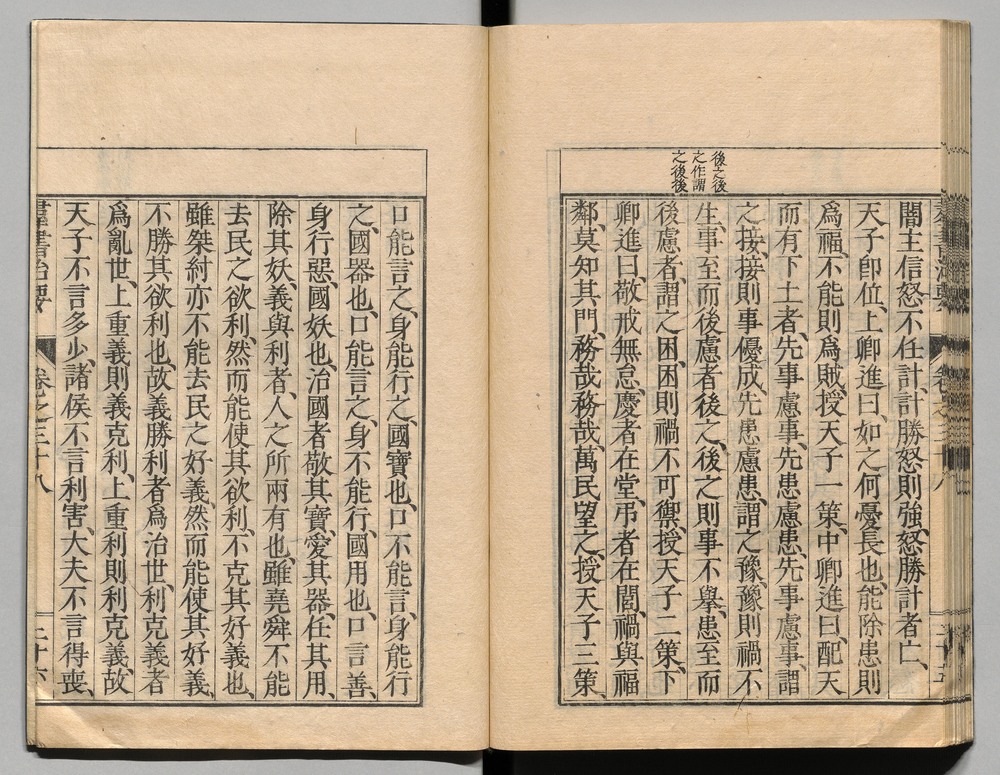 後之後
之作謂
之後後
闇王信怒不任計、計勝怒則強、怒勝計者亡、
天子即位、上卿進曰、如之何憂長也、能除患則
爲福、不能則爲賊、授天子一策、中卿進曰、配天
而有下土者、先事慮事、先患慮患、先事慮事、謂
之接、接則事優成、先患慮患、謂之豫、豫則禍不
生、事至而後慮者後之、後之則事不舉、患至而
後慮者、謂之困、困則禍不可禦、授天子二策、下
卿進曰、敬戒無怠、慶者在堂、弔者在閭、禍與福
鄰、莫知其門、務哉務哉、萬民望之、授天子三策
口能言之、身能行之、國寶也、口不能言、身能行
之、國器也、口能言之、身不能行、國用也、口言善、
身行惡、國妖也、治國者敬其寶、愛其器、任其用、
除其妖、義與利者、人之所兩有也、雖堯舜不能
去民之欲利、然而能使其欲利、不克其好義也、
雖桀紂亦不能去民之好義、然而能使其好義、
不勝其欲利也、故義勝利者爲治世、利克義者
爲亂世、上重義則義克利、上重利則利克義、故
天子不言多少、諸侯不言利害、大夫不言得喪、
羣書治要 卷之三十八 二十六